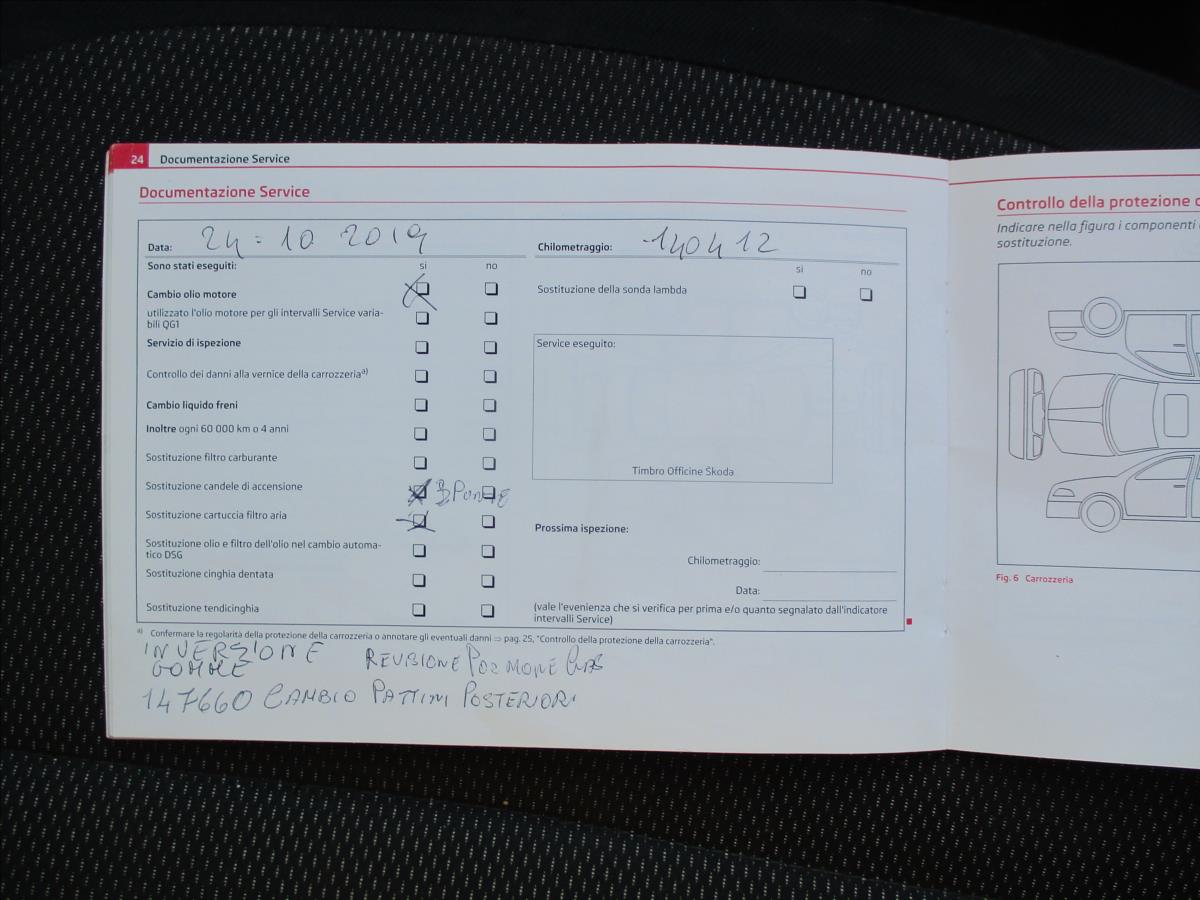 24 Documentazione Service
Documentazione Service
Data: 24 = 10 2019
Chilometraggio: 140412
Sono stati eseguiti: si no
Cambio olio motore
utilizzato l'olio motore per gli intervalli Service varia-
bili QG1
Servizio di ispezione
Controllo dei danni alla vernice della carrozzeria a)
Cambio liquido freni
Inoltre ogni 60 000 km o 4 anni
Sostituzione filtro carburante
Sostituzione candele di accensione
Sostituzione cartuccia filtro aria
Sostituzione olio e filtro dell'olio nel cambio automa-
tico DSG
Sostituzione cinghia dentata
Sostituzione tendicinghia
si no
Sostituzione della sonda lambda
Service eseguito:
Timbro Officine Skoda
Prossima ispezione:
Chilometraggio:
Data:
(vale l'evenienza che si verifica per prima e/o quanto segnalato dall'indicatore
intervalli Service)
a) Confermare la regolarità della protezione della carrozzeria o annotare gli eventuali danni ⇒ pag. 25, "Controllo della protezione della carrozzeria".
INVERZIONE
GOMME
REVISIONE POLMONE GAS
147660 CAMBIO PATTINI POSTERIORI
Controllo della protezione
Indicare nella figura i componenti
sostituzione.
Fig. 6 Carrozzeria